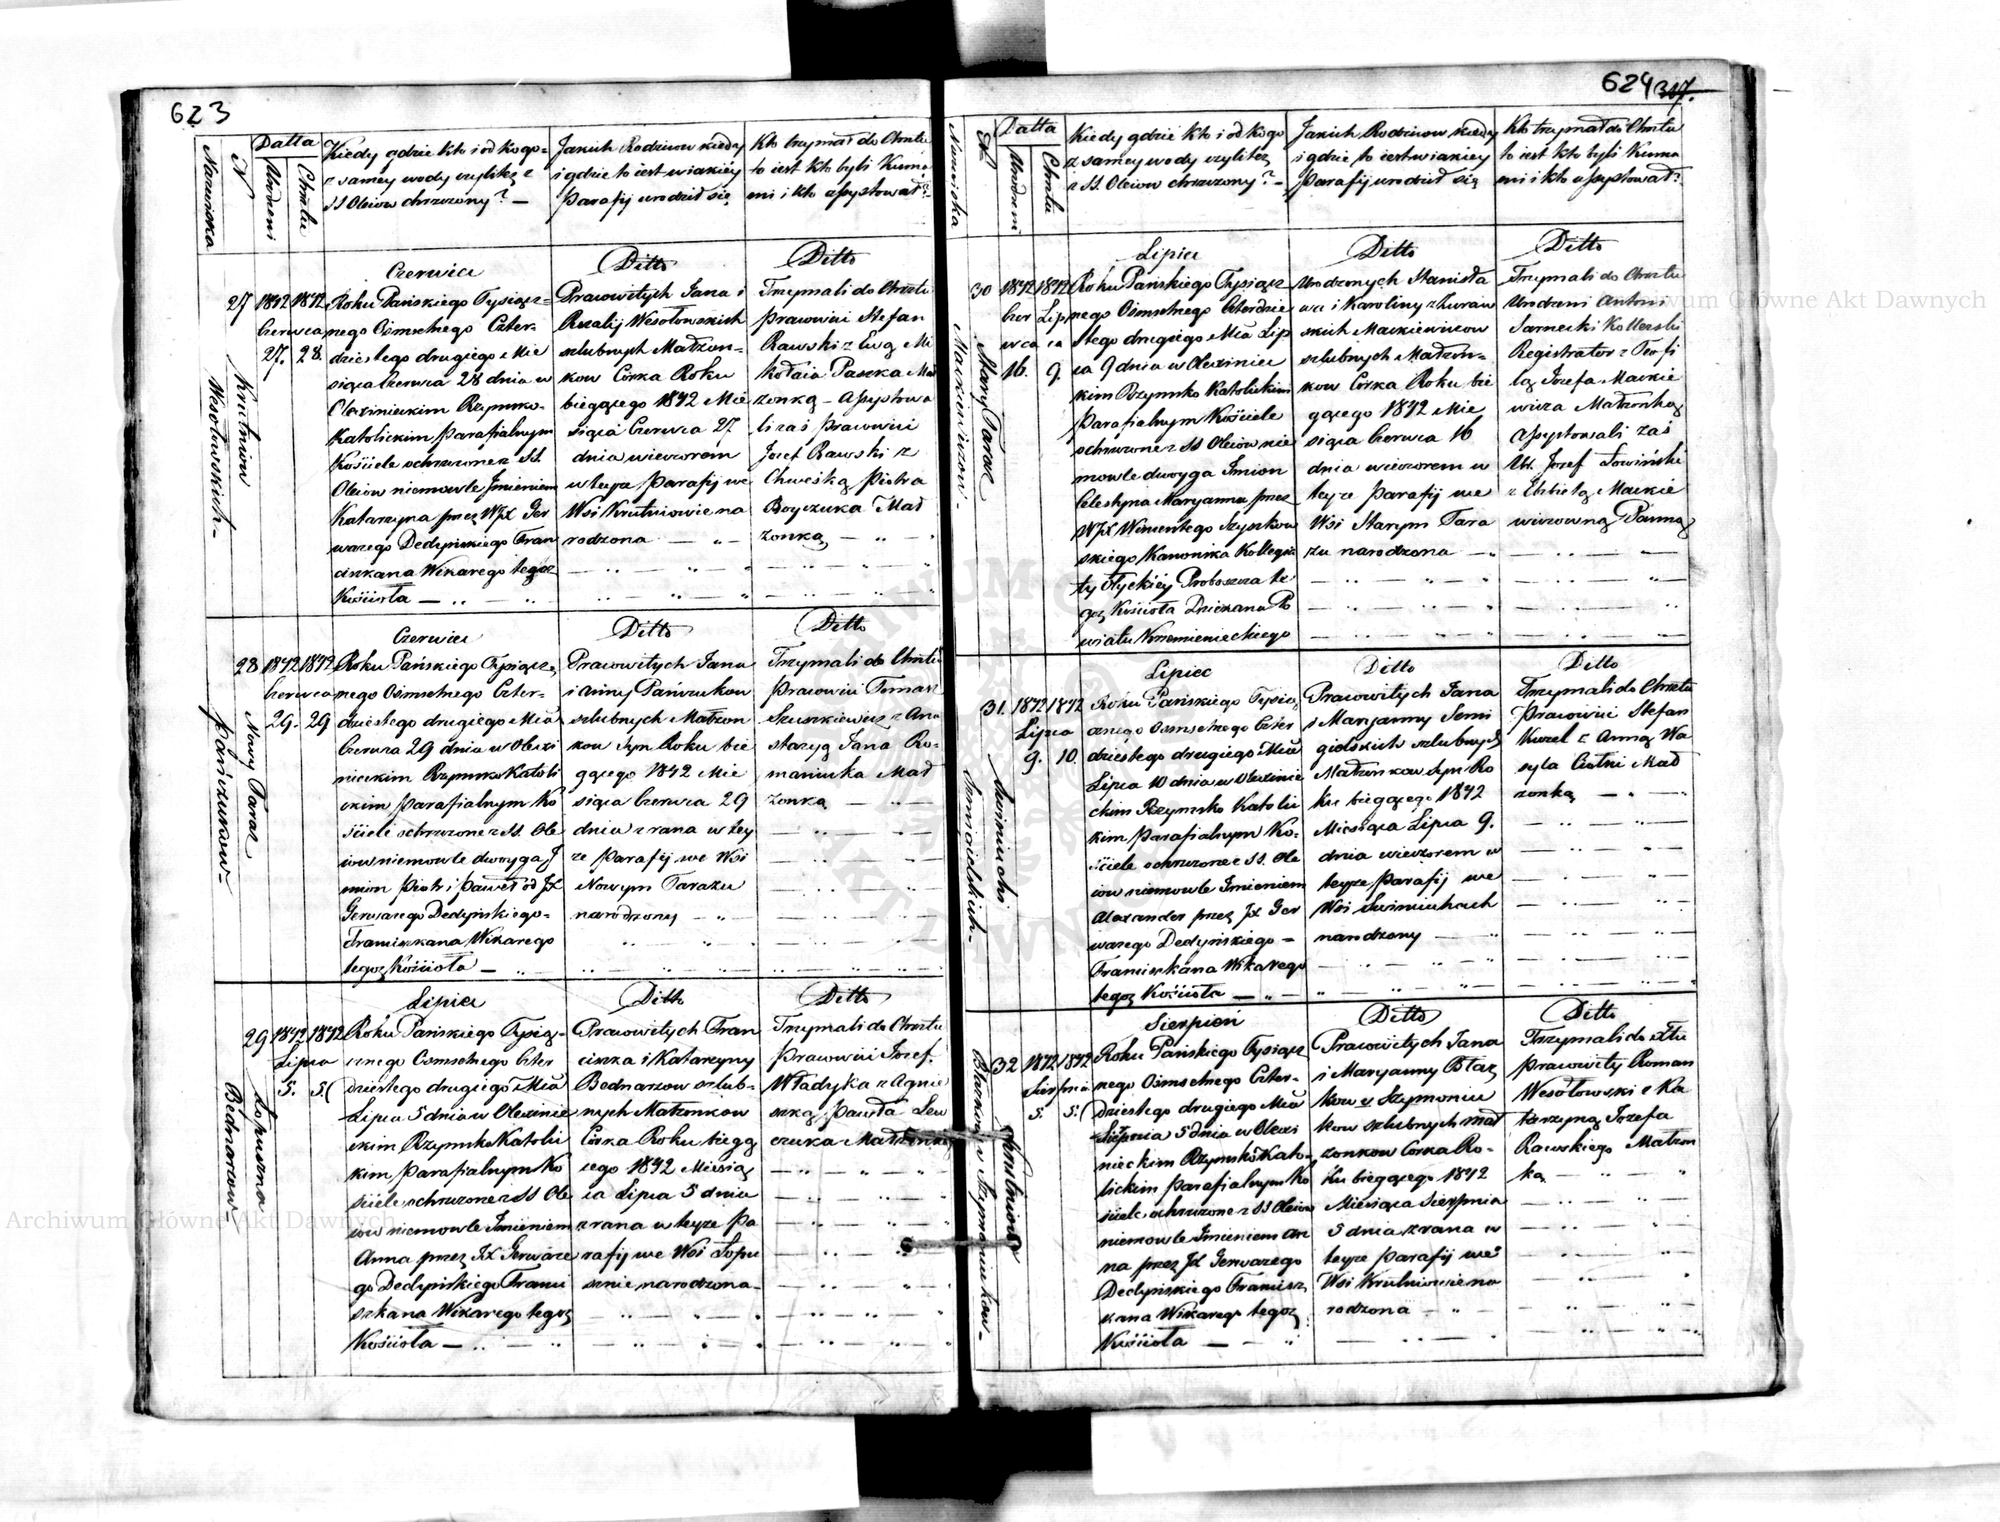 623
Nazwiska
N
Datta
Urodzeni
Chrztu
Kiedy gdzie kto i od kogo
z samey wody czyliteż z
SS Oleiow chrzczony? —
Jakich Rodziców kiedy
i gdzie to iest w iakiéy
Parafij urodził się
Kto trzymał do Chrztu
to iest kto byli Kuma
mi i kto assystował?
27
Krutniow
Wesołowskich
1842
Czerwca
27.
1842
28
Czerwiec
Roku Pańskiego Tysiącz-
nego Ośmsetnego Czter-
dziestego drugiego Mie
siąca Czerwca 28 dnia w
Olexinieckim Rzymsko-
Katolickim Parafialnym
Kościele ochrzczone z SS.
Oleiow niemowle Imieniem
Katarzyna przez WJX Ger
wazego Dedyńskiego Fran
ciszkana Wikarego tegoż
Kościoła
Ditto
Pracowitych Jana i
Rozalij Wesołowskich
szlubnych Małżon-
kow Corka Roku
bieżącego 1842 Mie
siąca Czerwca 27
dnia wieczorem
w teyże Parafij we
Wsi Krutniowie na
rodzona
Ditto
Trzymali do Chrztu
Pracowici Stefan
Rawski z Ewą Mi
kołaia Paszka Mał
żonką — Assystowa
li zaś Pracowici
Jozef Rawski z
Chweśką Piotra
Boyczuka Mał
żonką
28
Nowy Taraż
Pańczukow
1842
Czerwca
29.
1842
29
Czerwiec
Roku Pańskiego Tysiącz
nego Ośmsetnego Czter-
dziestego drugiego Mca
Czerwca 29 dnia w Olexi
nieckim Rzymsko Katoli
ckim Parafialnym Ko
ściele ochrzczone z SS. Ole
iow niemowle dwoyga J
mion Piotr i Paweł od JX
Gerwazego Dedyńskiego-
Franciszkana Wikarego
tegoż Kościoła
Ditto
Pracowitych Jana
i Anny Pańczukow
szlubnych Małżon
kow Syn Roku bie
żącego 1842 Mie
siąca Czerwca 29
dnia z rana w tey
że Parafij we Wsi
Nowym Tarażu
narodzony
Ditto
Trzymali do Chrztu
Pracowici Tomasz
Szuszkiewicz z Ana
stazyą Jana Ro-
maniuka Mał
żonką
29
Łopuszna
Bednarzow
1842
Lipca
5.
1842
5
Lipiec
Roku Pańskiego Tysią-
cznego Osmsetnego Czter
dziestego drugiego Mca
Lipca 5 dnia w Olexinie
ckim Rzymsko Katolic
kim Parafialnym Ko
ściele ochrzczone z SS Ole
iow niemowle Imieniem
Anna przez JX Gerwaze
go Dedyńskiego Franci
szkana Wikarego tegoż
Kościoła
Ditto
Pracowitych Fran
ciszka i Katarzyny
Bednarzow szlub-
nych Małżonkow
Corka Roku bieżą
cego 1842 Miesią
ca Lipca 5 dnia
z rana w teyże Pa
rafij we Wsi Łopu
sznie narodzona
Ditto
Trzymali do Chrztu
Pracowici Jozef
Władyka z Agnie
szką Pawła Lew
czuka Małżonką
624
307.
Nazwiska
Datta
Urodzeni
Chrztu
Kiedy gdzie kto i od kogo
z samey wody czyliteż
z SS. Oleiow chrzczony? —
Jakich Rodzicow kiedy
i gdzie to iest w iakiey
Parafij urodził się
Kto trzymał do Chrztu
to iest kto byli Kuma
mi i kto assystował?
30
Stary Taraż
Mackiewiczow
1842
Czer
wca
16.
1842
Lip
ca
9.
Lipiec
Roku Pańskiego Tysiącz
nego Ośmsetnego Czterdzie
stego drugiego Mca Lip
ca 9 dnia w Olexiniec
kim Rzymsko Katolickim
Parafialnym Kościele
ochrzczone z SS Oleiow nie
mowle dwoyga Imion
Celestyna Maryanna przez
WJX Wincentego Szyszkow
skiego Kanonika Kollegia
ty Ołyckiéy Proboszcza te
goż Kościoła Dziekana Po
wiatu Krzemienieckiego
Ditto
Urodzonych Stanisła
wa i Karoliny z Żuraw
skich Mackiewiczow
szlubnych Małżon-
kow Corka Roku bie
żącego 1842 Mie
siąca Czerwca 16
dnia wieczorem w
teyże Parafij we
Wsi Starym Tara
żu narodzona
Ditto
Trzymali do Chrztu
Urodzeni Antoni
Sarnecki Kolleski
Registrator z Teofi
lą Jozefa Mackie
wicza Małżonką
Assystowali zaś
Ur. Jozef Łowiński
z Elżbietą Mackie
wiczowną Panną
31.
Swiniuchi
Semigielskich
1842
Lipca
9.
1842
10.
Lipiec
Roku Pańskiego Tysią
cznego Osmsetnego Czter
dziestego drugiego Mca
Lipca 10 dnia w Olexinie
ckim Rzymsko Katolic
kim Parafialnym Ko-
ściele ochrzczone z SS. Ole
iow niemowle Imieniem
Alexander przez JX Ger
wazego Dedyńskiego —
Franciszkana Wikarego
tegoż Kościoła
Ditto
Pracowitych Jana
i Maryanny Semi
gielskich szlubnych
Małżonkow Syn Ro
ku bieżącego 1842
Miesiąca Lipca 9.
dnia wieczorem w
teyże Parafij we
Wsi Swiniuchach
narodzony
Ditto
Trzymali do Chrztu
Pracowici Stefan
Kuzel z Anną Wa
syla Ciotki Mał
żonką
32
Krutniow
Błażkow v Szymoniukow
1842
Sierpnia
5
1842
5
Sierpień
Roku Pańskiego Tysiącz
nego Ośmsetnego Czter-
dziestego drugiego Mca
Sierpnia 5 dnia w Olexi
nieckim Rzymsko Kato-
lickim Parafialnym Ko
ściele ochrzczone z SS Oleiow
niemowle Imieniem An
na przez JX Gerwazego
Dedyńskiego Francisz
kana Wikarego tegoż
Kościoła
Ditto
Pracowitych Jana
i Maryanny Błaż
kow v Szymoniu
kow szlubnych Mał
żonkow Corka Ro-
ku bieżącego 1842
Miesiąca Sierpnia
5 dnia z rana w
teyże Parafij we
Wsi Krutniowie na
rodzona
Ditto
Trzymali do Xtu
Pracowity Roman
Wesołowski z Ka
tarzyną Jozefa
Rawskiego Małżon
ką
Archiwum Główne Akt Dawnych
Archiwum Główne Akt Dawnych